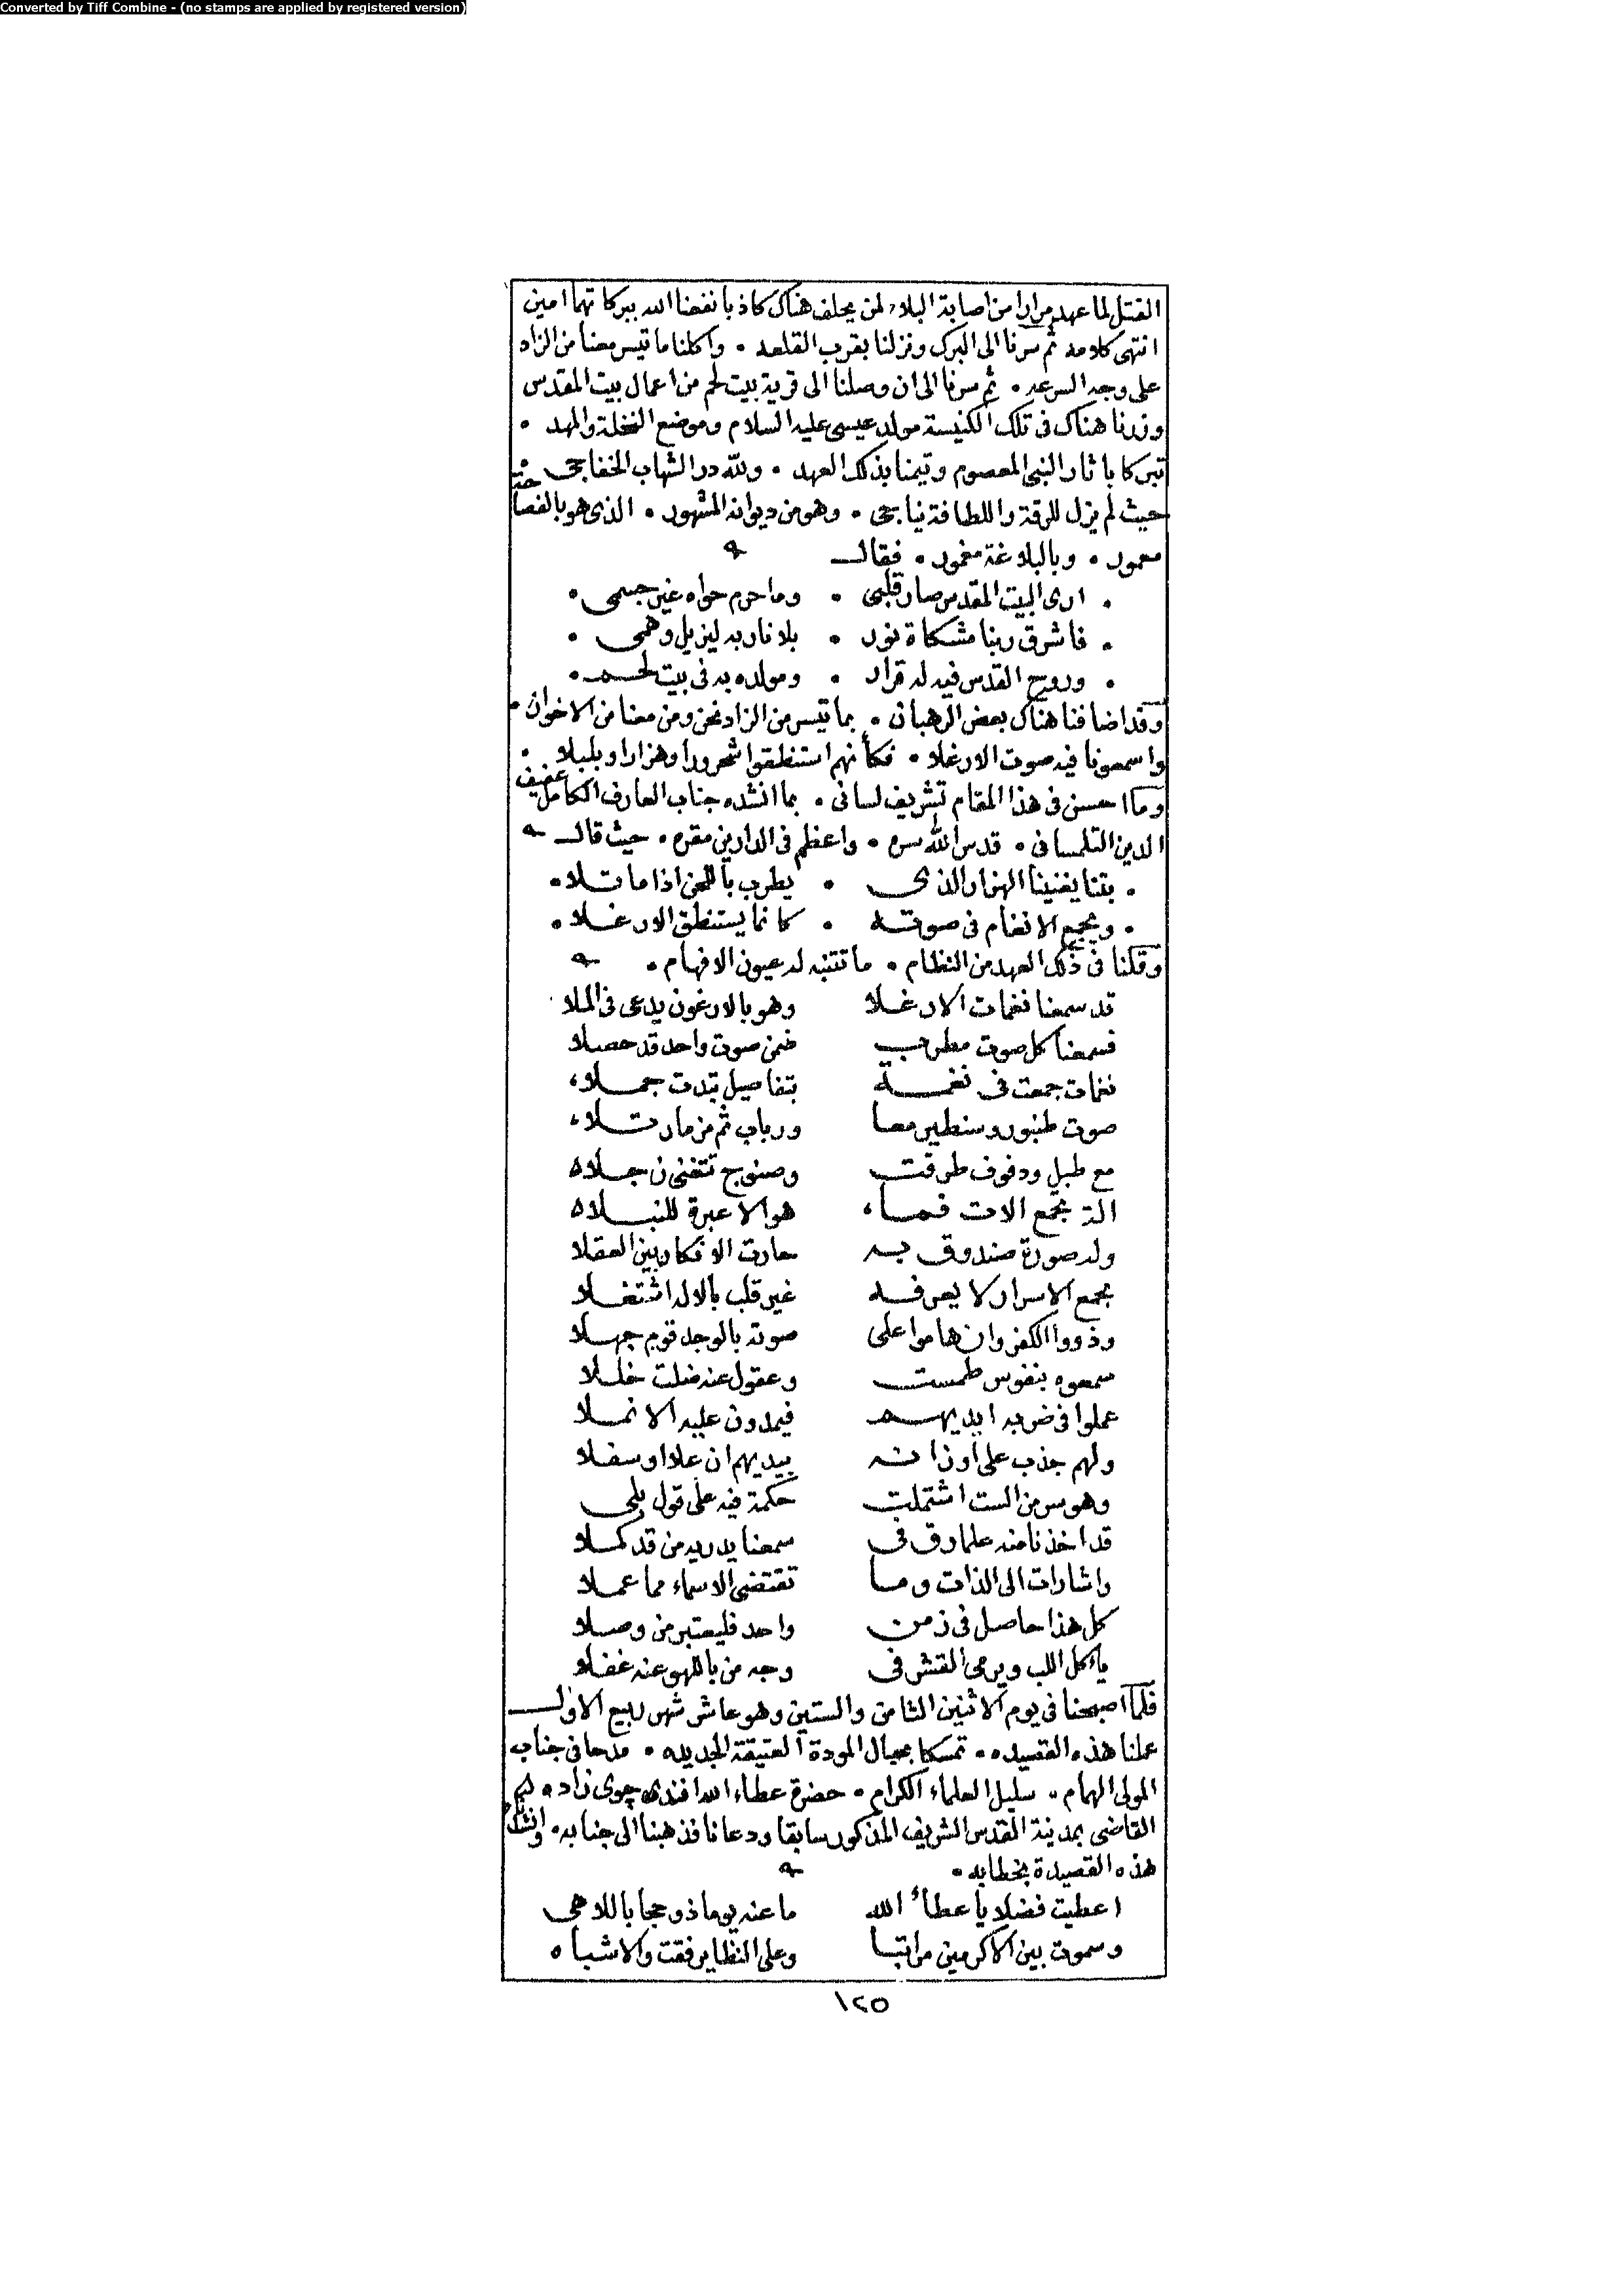 Converted by Tiff Combine - (no stamps are applied by registered version)
القتل لما عهد مرارا من اصابة البلاء لمن يحلف هناك كاذبا نفعنا الله ببركاتهما امين
انتهى كلامه ثم سرنا الى البرك ونزلنا بقرب القلعه • واكلنا ما تيسر معنا من الزاد
على وجه السرعه • ثم سرنا الى ان وصلنا الى قرية بيت لحم من اعمال بيت المقدس
وزرنا هناك فى تلك الكنيسة مولد عيسى عليه السلام وموضع النخلة والمهد •
تبركا باثار النبى المعصوم وتيمنا بذلك العهد • ولله در الشهاب الخفاجى
حيث لم يزل للرقة واللطافة يناجى • وهو من ديوانه المشهور • الذى هو بالفصاحة
معمور • وبالبلاغة مغمور • فقال
• ارى البيت المقدس صار قلبى • وما حرم حواه غير جسمى •
• فاشرق ربنا مشكاة نور • بلا نار به ليزيل وهمى •
• وروح القدس فيه له قرار • ومولده به فى بيت لحم •
وقد اضافنا هناك بعض الرهبان • بما تيسر من الزاد نحن ومن معنا من الاخوان •
واسمعونا فيه صوت الارغلا • فكأنهم استنطقوا شحرورا وهزارا وبلبلا •
وما احسن فى هذا المقام تشريف لسانى • بما انشده جناب العارف الكامل عفيف
الدين التلمسانى • قدس الله سره • واعظم فى الدارين مقره • حيث قال
• بتنا يغنينا الهزار الذى • يطرب باللحن اذا ما تلا •
• ويجمع الانغام فى صوته • كانما يستنطق الارغلا •
وقلنا فى ذلك العهد من النظام • ما تتنبه له عيون الافهام •
قد سمعنا نغمات الارغلا وهو بالارغون يدعى فى الملا
فسمعنا كل صوت مطرب ضمن صوت واحد قد حصلا
نغمات جمعت فى نغمة بتفاصيل تبدت جملا
صوت طنبور وسنطير معا ورباب ثم مزمار تلا
مع طبل ودفوف طرقت وصنوج تتغنى زجلا
الة تجمع الات فما هو الا عبرة للنبلا
وله صورة صندوق به حارت الافكار بين العقلا
مجمع الاسرار لا يعرفه غير قلب بالاله اشتغلا
وذووا الكفر وان هاموا على صوته بالوجد قوم جهلا
سمعوه بنفوس طمست وعقول عنه ضلت خللا
عملوا فى ضربه ايديهم فيمدون عليه الانملا
ولهم جذب على اوزانه بيديهم ان علا او سفلا
وهو سر من الست اشتملت حكمة فيه على قول بلى
قد اخذنا منه علما رق فى سمعنا يدريه من قد كملا
واشارات الى الذات وما تقتضى الاسماء مما عملا
كل هذا حاصل فى زمن واحد فليعتبر من وصلا
يأكل اللب ويرمى القشر فى وجه من باللهو عنه غفلا
فلما اصبحنا فى يوم الاثنين الثامن والستين وهو عاشر شهر ربيع الاول
عملنا هذه القصيده • تمسكا بحبال المودة العتيقة الجديده • مدحا فى جناب
المولى الهمام • سليل العلماء الكرام • حضرة عطاء الله افندى چوى زاده •
القاضى بمدينة القدس الشريف المذكور سابقا ودعانا فذهبنا الى جنابه •
هذه القصيدة بخطابه •
اعطيت فضلا يا عطاء الله ما عنه يوما ذو حجا باللاهى
وسموت بين الاكرمين مراتبا وعلى النظاير فقت والاشباه
١٢٥